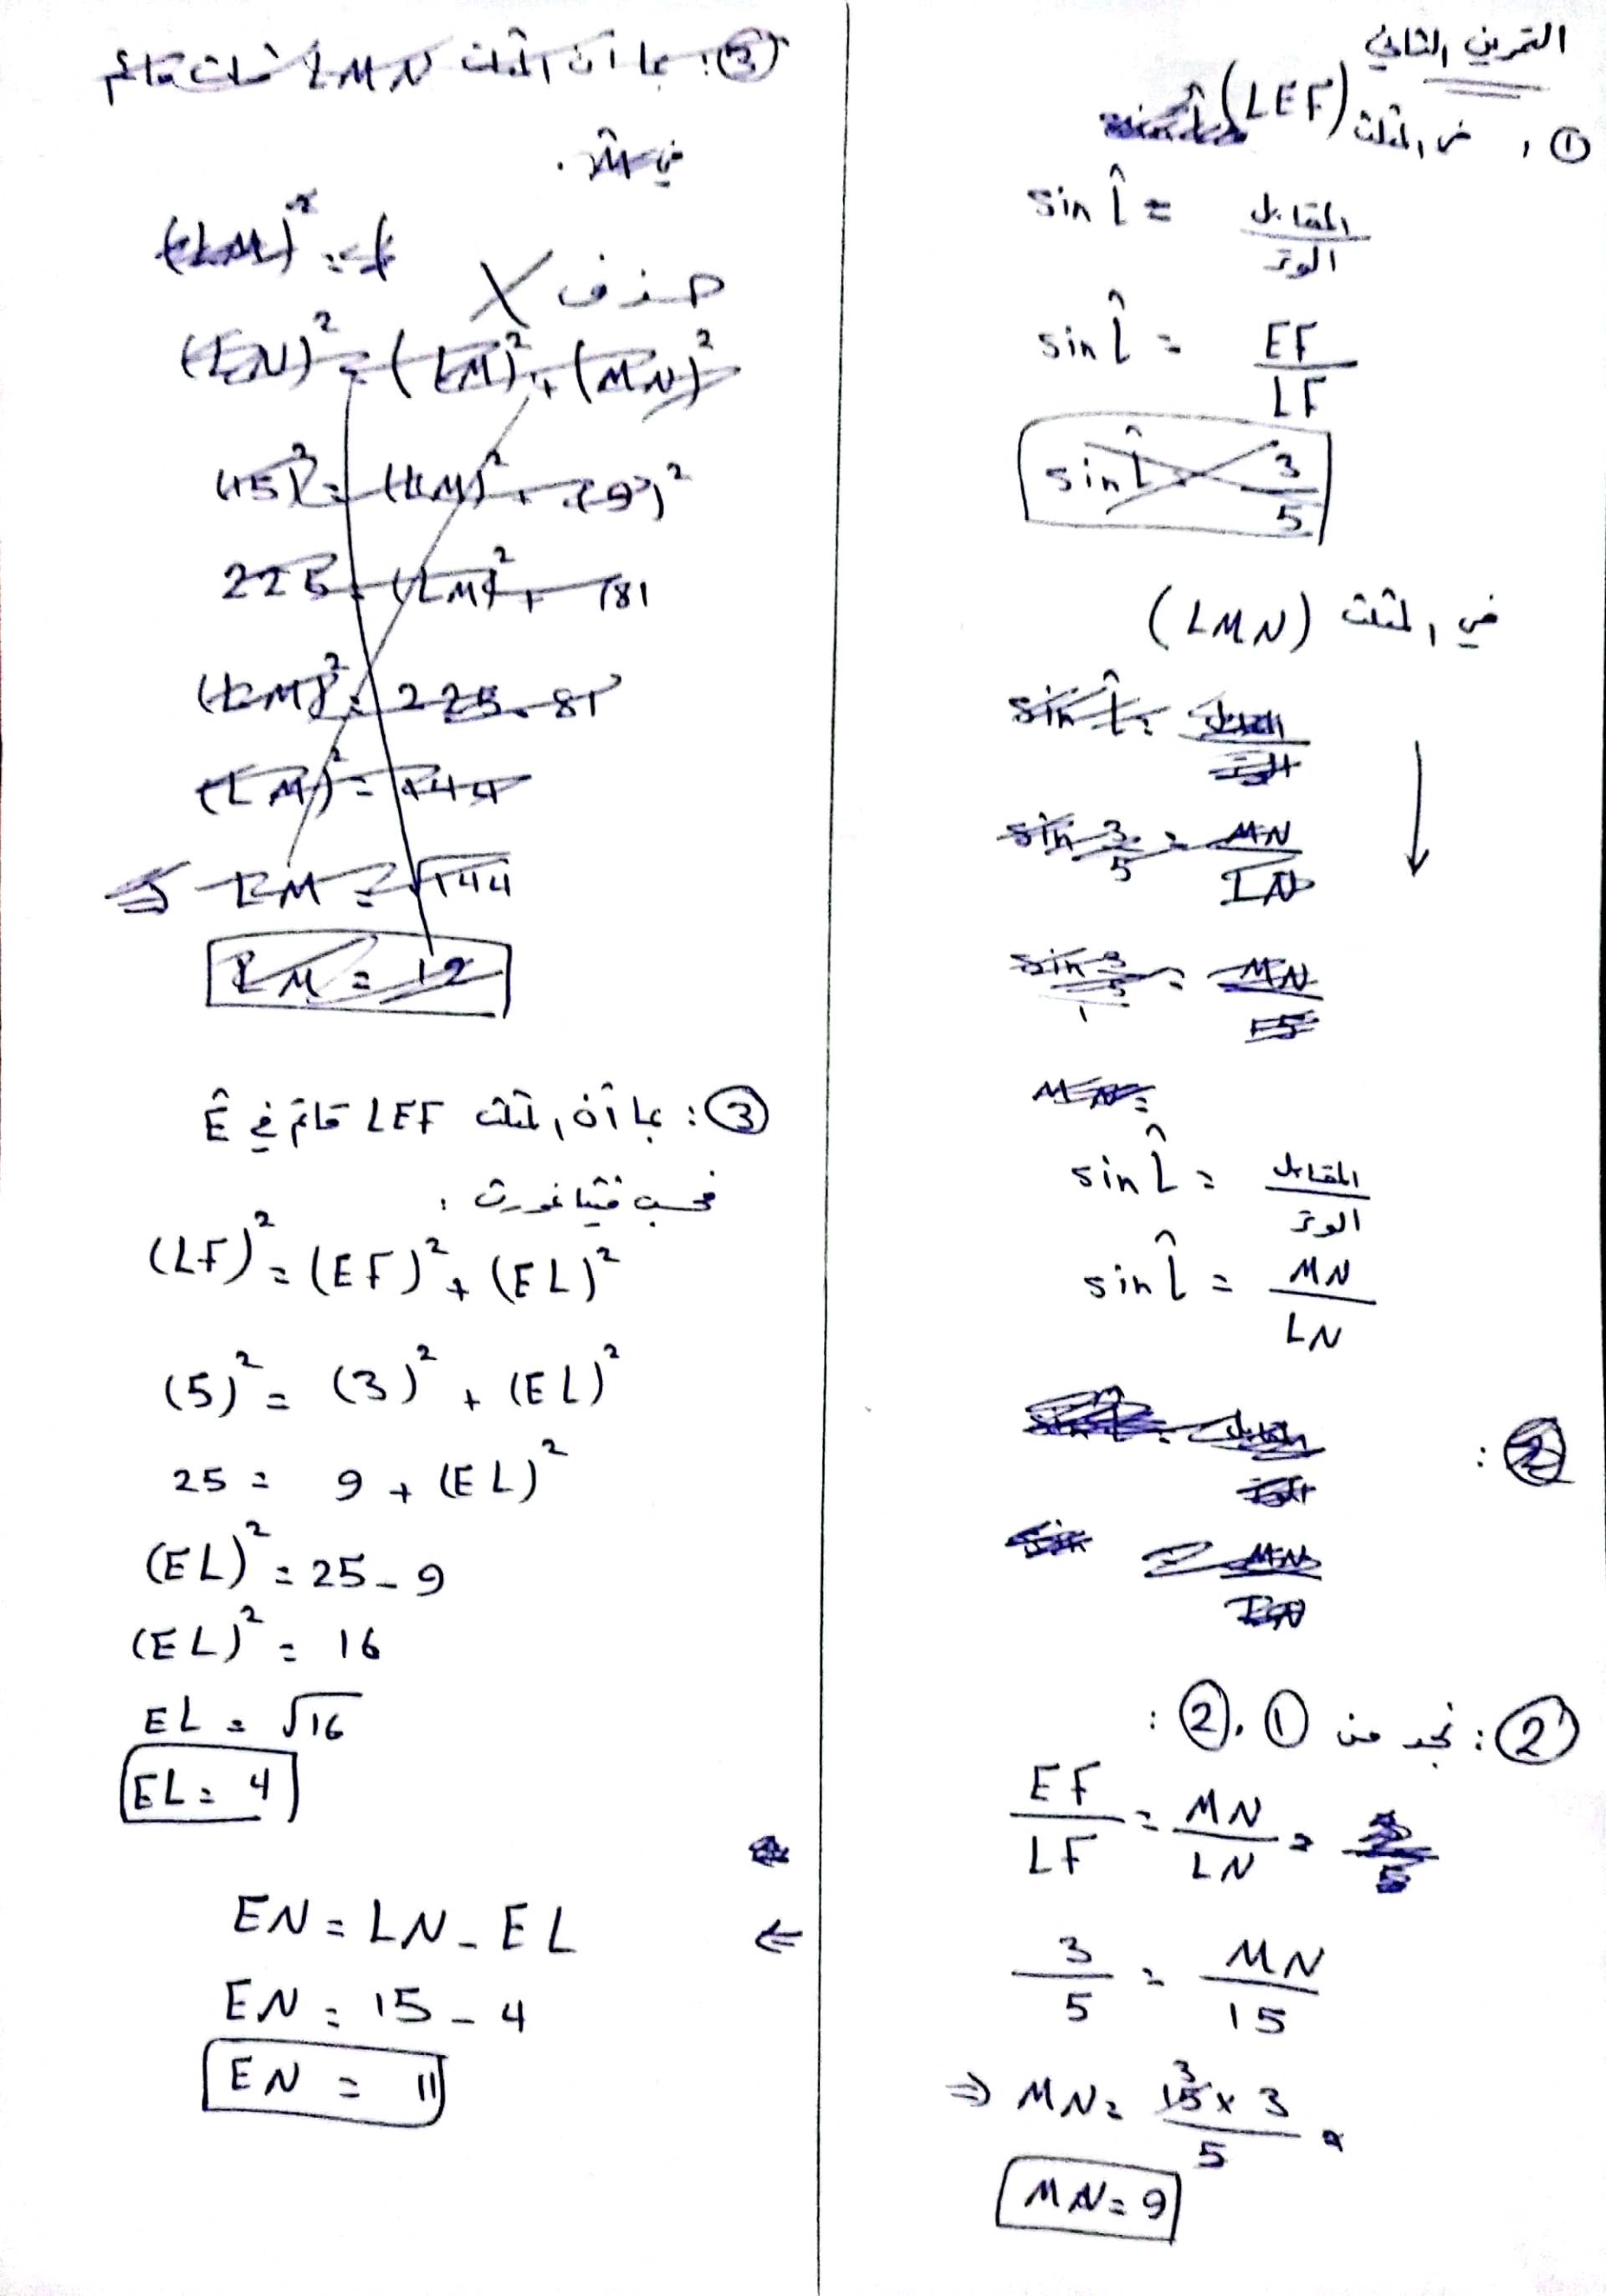 التمرين الثاني
① , في المثلث (LEF)
sin L̂ = المقابل / الوتر
sin L̂ = EF / LF
sin L̂ = 3 / 5
في المثلث (LMN)
sin L̂ = المقابل / الوتر
sin 3/5 = MN / LN
sin 3/5 = MN / 15
MN =
sin L̂ = المقابل / الوتر
sin L̂ = MN / LN
② :
sin = MN / LN
② : نجد من ① , ② :
EF / LF = MN / LN = 3 / 5
3 / 5 = MN / 15
⇒ MN = 15 × 3 / 5 =
3
MN = 9
③ : بما أن المثلث LMN مثلث قائم
في M̂ .
(LM)² = (
حذف X
(LN)² = (LM)² + (MN)²
(15)² = (LM)² + (9)²
225 = (LM)² + 81
(LM)² = 225 - 81
(LM)² = 144
⇒ LM = √144
LM = 12
③ : بما أن المثلث LEF قائم في Ê
فحسب فيثاغورث :
(LF)² = (EF)² + (EL)²
(5)² = (3)² + (EL)²
25 = 9 + (EL)²
(EL)² = 25 - 9
(EL)² = 16
EL = √16
EL = 4
EN = LN - EL ⇐
EN = 15 - 4
EN = 11